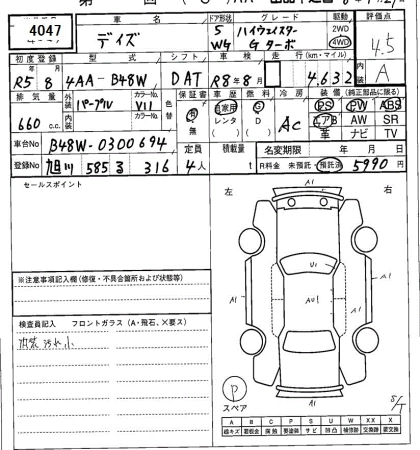 4047
車名
デイズ
ドア形状
5
WG
グレード
ハイウェイスター
Gターボ
駆動
2WD
4WD
評価点
4.5
初度登録
R5年8月
型式
4AA-B48W
シフト
DAT
車検
R8年8月
走行(km・マイル)
4,632
内装
A
排気量
660 c.c.
外装
パープル
内装
カラーNo.
V11
カラーNo.
色替
保証書
有
無
車歴
自家用
レンタ
( )
燃料
G
D
( )
冷房
AC
装備(純正部品に限る)
PS PW ABS
エアB AW SR
革 ナビ TV
車台No
B48W-0300694
定員
4人
積載量
t
名変期限 年 月 日
登録No
旭川 585 る 316
R料金 未預託・預託済 5990円
セールスポイント
左
右
A1
A1
U1
AU1
A1
A1
※注意事項記入欄(修復・不具合箇所および状態等)
検査員記入 フロントガラス(A・飛石、×要ス)
内装汚れ小
P
スペア
A B C P S U W X XX
線キズ 要板金 腐蝕 要塗装 サビ 凹凸 補修跡 交換跡 要交換